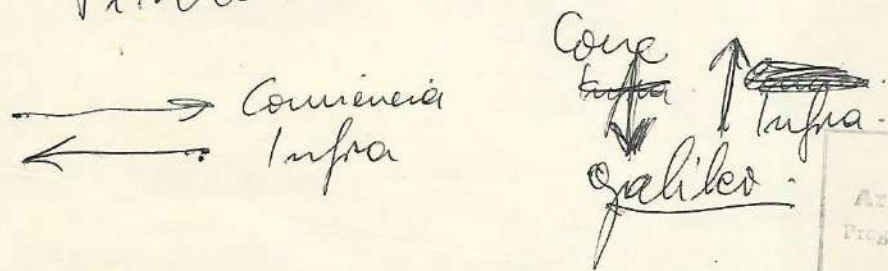 Conciencia
Infra
Conc
Infra
Infra.
galileo.
Ar
Prog